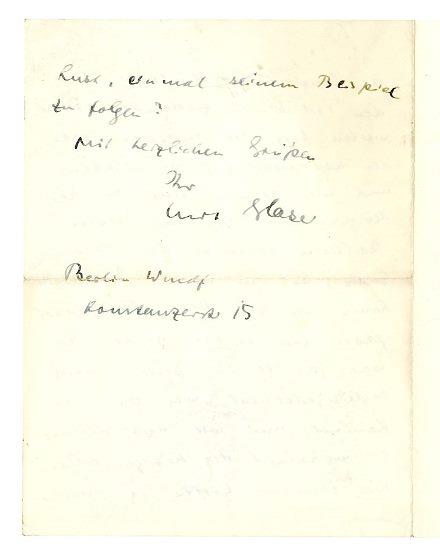 Lust, einmal seinem Beispiel
zu folgen?
Mit herzlichen Grüßen
Ihr
Curt Glaser
Berlin Wmdf
Konstanzerstr 15